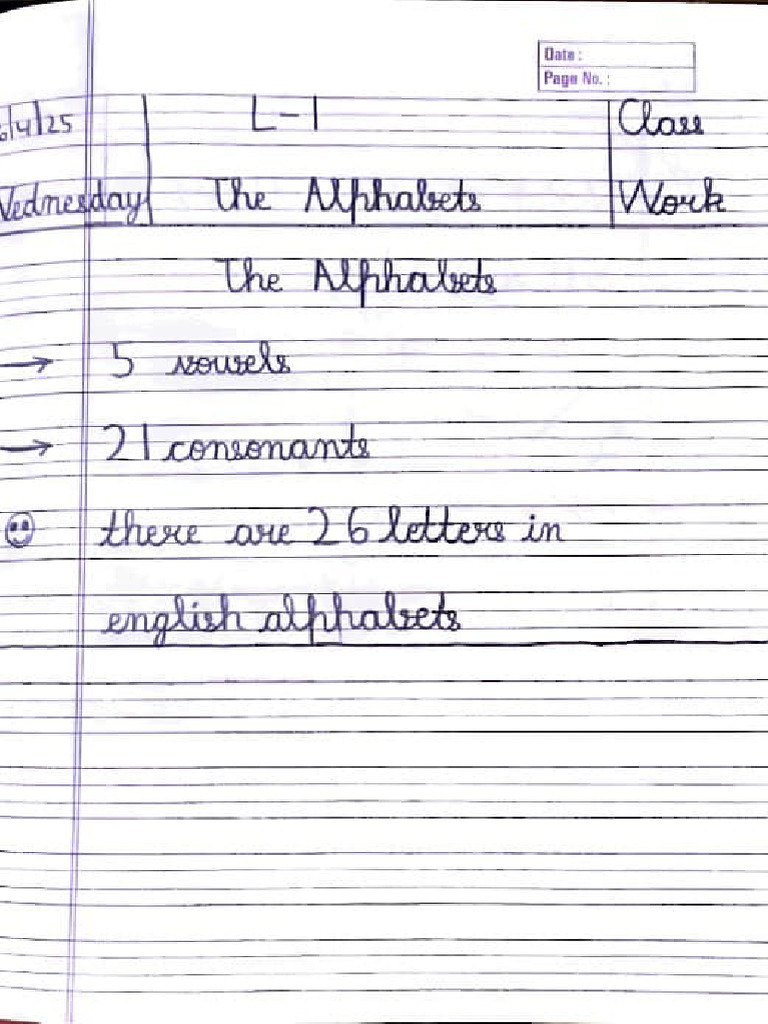 Date :
Page No. :
6/4/25 L-1 Class
Wednesday The Alphabets Work
The Alphabets
→ 5 vowels
→ 21 consonants
there are 26 letters in
english alphabets